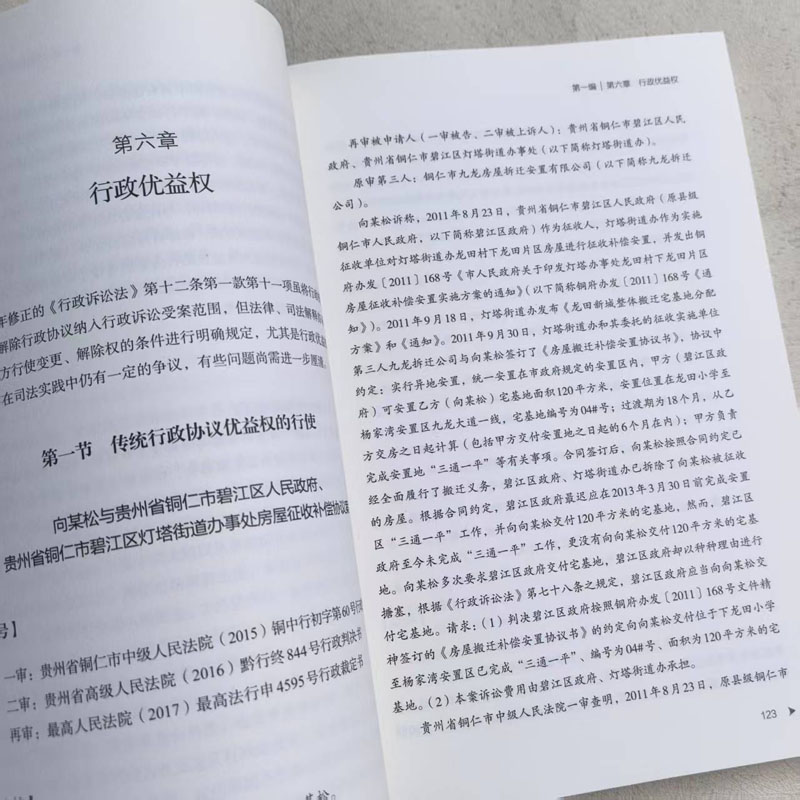 第六章
行政优益权
年修正的《行政诉讼法》第十二条第一款第十一项虽将行
解除行政协议纳入行政诉讼受案范围，但法律、司法解释
方行使变更、解除权的条件进行明确规定，尤其是行政优
在司法实践中仍有一定的争议，有些问题尚需进一步厘
第一节 传统行政协议优益权的行使
向某松与贵州省铜仁市碧江区人民政府、
贵州省铜仁市碧江区灯塔街道办事处房屋征收补偿协议
号】
一审：贵州省铜仁市中级人民法院（2015）铜中行初字第60号行政判决书
二审：贵州省高级人民法院（2016）黔行终844号行政判决书
再审：最高人民法院（2017）最高法行申4595号行政裁定书
某松。
第一编 | 第六章 行政优益权
再审被申请人（一审被告、二审被上诉人）：贵州省铜仁市碧江区人民
政府、贵州省铜仁市碧江区灯塔街道办事处（以下简称灯塔街道办）。
原审第三人：铜仁市九龙房屋拆迁安置有限公司（以下简称九龙拆迁
公司）。
向某松诉称，2011年8月23日，贵州省铜仁市碧江区人民政府（原县级
铜仁市人民政府，以下简称碧江区政府）作为征收人，灯塔街道办作为实施
征收单位对灯塔街道办龙田村下龙田片区房屋进行征收补偿安置，并发出铜
府办发［2011］168号《市人民政府关于印发灯塔办事处龙田村下龙田片区
房屋征收补偿安置实施方案的通知》（以下简称铜府办发［2011］168号《通
知》）。2011年9月18日，灯塔街道办发布《龙田新城整体搬迁宅基地分配
方案》和《通知》。2011年9月30日，灯塔街道办和其委托的征收实施单位
第三人九龙拆迁公司与向某松签订了《房屋搬迁补偿安置协议书》，协议中
约定：实行异地安置，统一安置在市政府规定的安置区内，甲方（碧江区政
府）可安置乙方（向某松）宅基地面积120平方米，安置位置在龙田小学至
杨家湾安置区九龙大道一线，宅基地编号为04#号；过渡期为18个月，从乙
方交房之日起计算（包括甲方交付安置地之日起的6个月在内）；甲方负责
完成安置地“三通一平”等有关事项。合同签订后，向某松按照合同约定已
经全面履行了搬迁义务，碧江区政府、灯塔街道办已拆除了向某松被征收
的房屋。根据合同约定，碧江区政府最迟应在2013年3月30日前完成安置
区“三通一平”工作，并向向某松交付120平方米的宅基地，然而，碧江区
政府至今未完成“三通一平”工作，更没有向向某松交付120平方米的宅基
地。向某松多次要求碧江区政府交付宅基地，碧江区政府却以种种理由进行
搪塞，根据《行政诉讼法》第七十八条之规定，碧江区政府应当向向某松交
付宅基地。请求：（1）判决碧江区政府按照铜府办发［2011］168号文件精
神签订的《房屋搬迁补偿安置协议书》的约定向向某松交付位于下龙田小学
至杨家湾安置区已完成“三通一平”、编号为04#号、面积为120平方米的宅
基地。（2）本案诉讼费用由碧江区政府、灯塔街道办承担。
贵州省铜仁市中级人民法院一审查明，2011年8月23日，原县级铜仁市
123